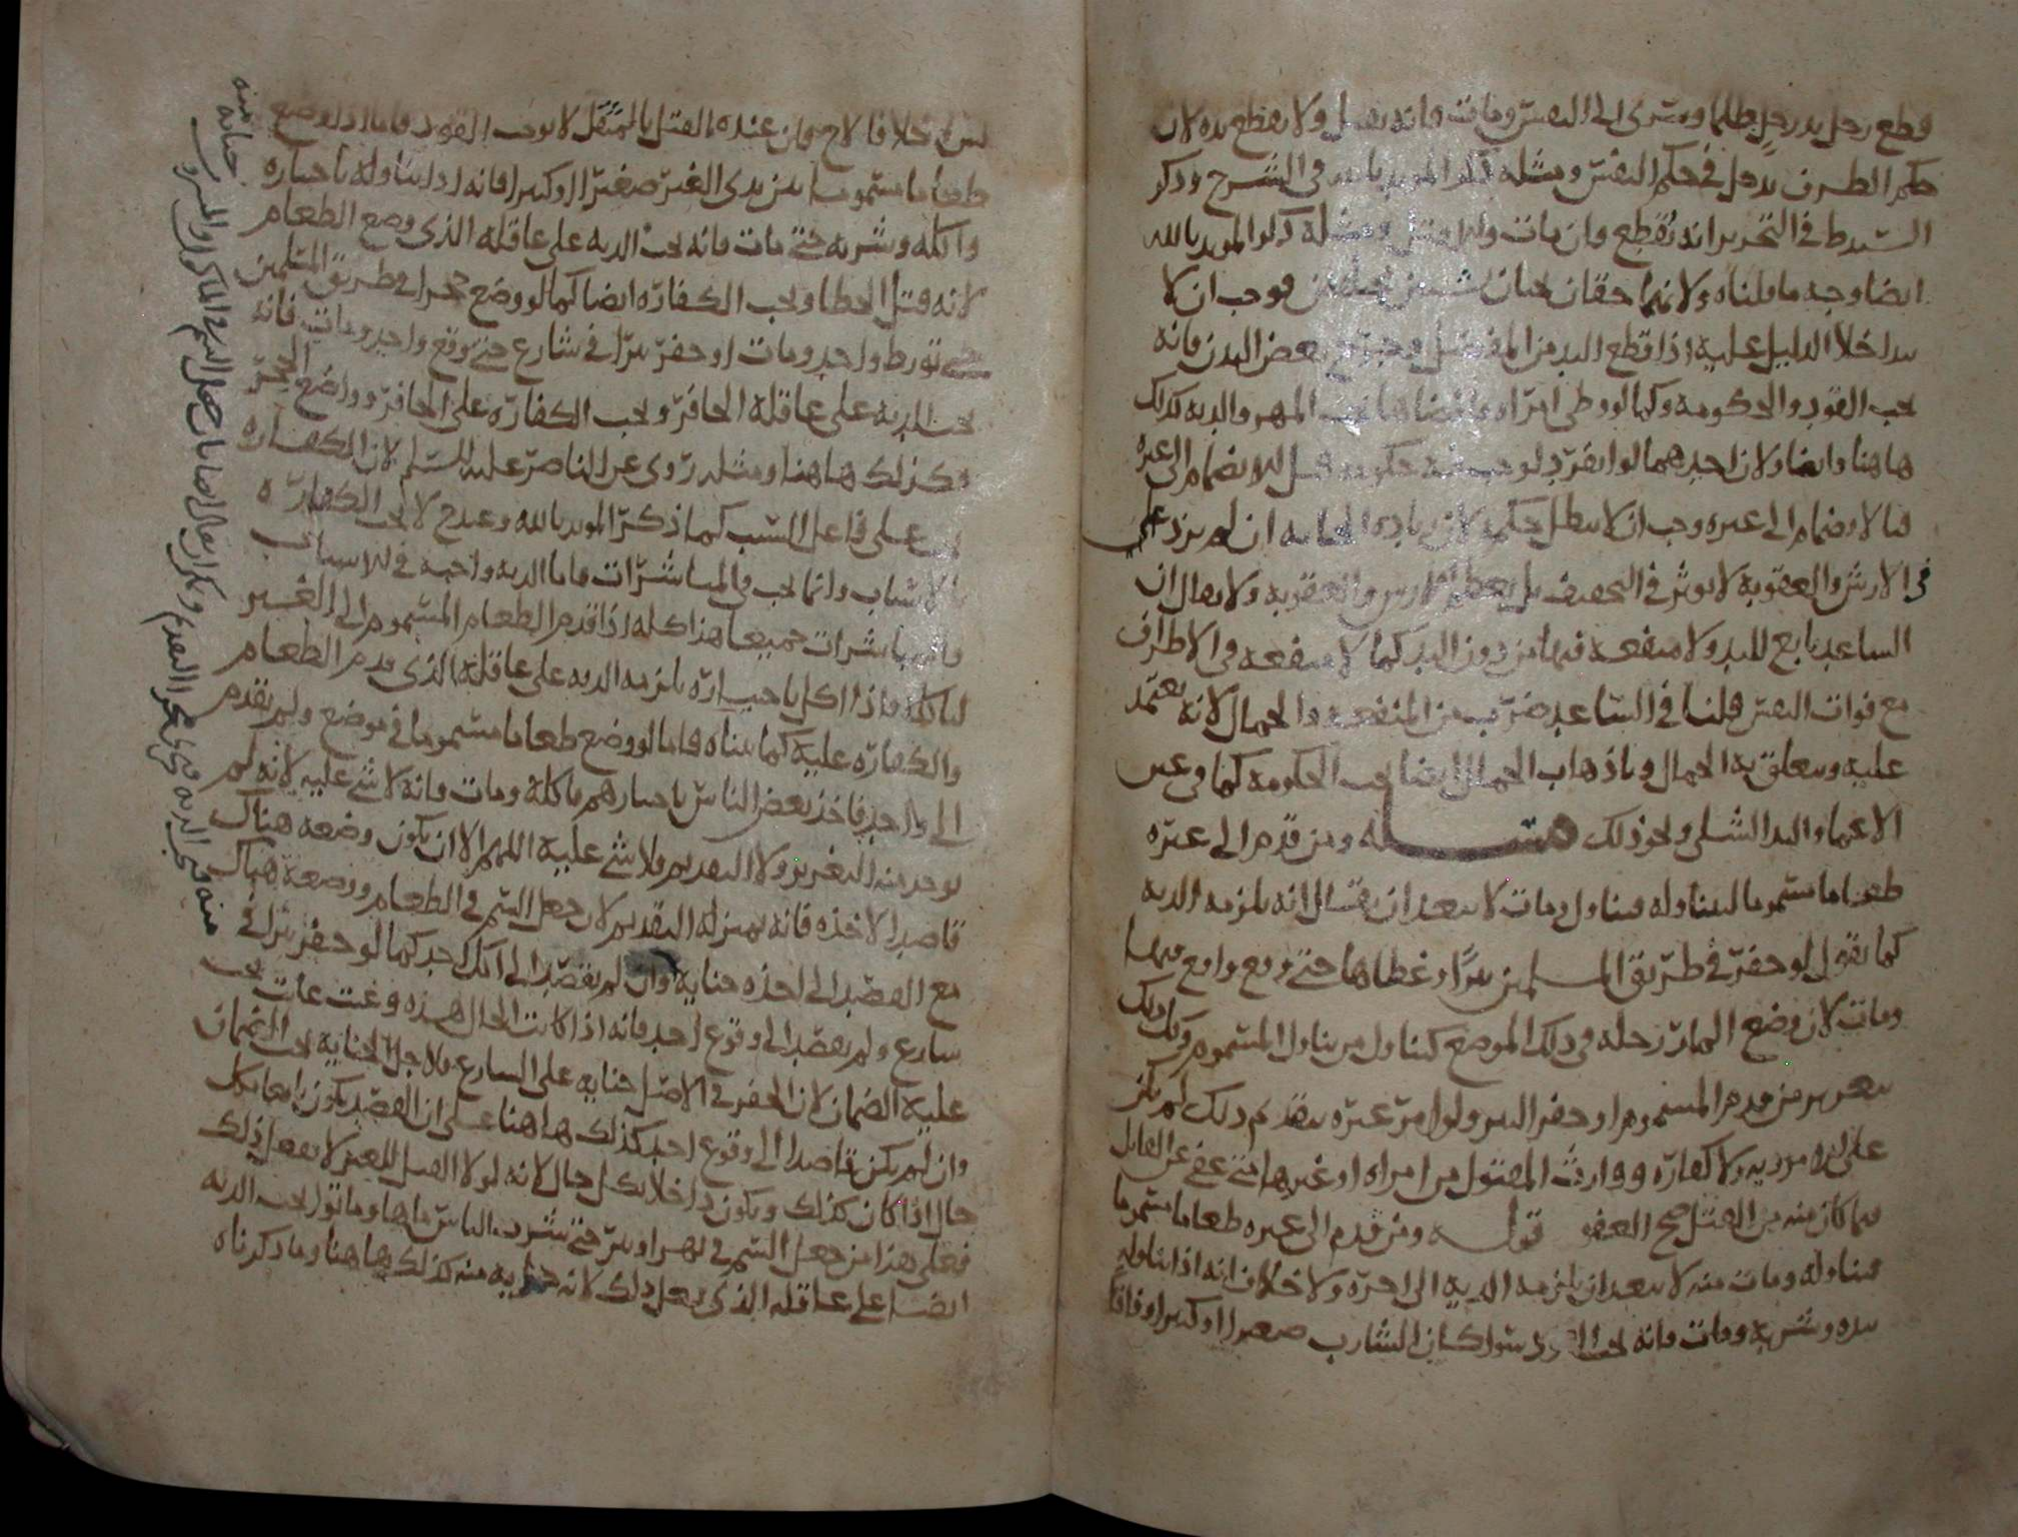 قطع رجل يد رجل ظلما وسرى الى النفس ومات فانه يقتل ولا يقطع يده لان
حكم الطرف يدخل في حكم النفس ومثله ذكر المويد بالله في الشرح وذكر
السيد ط في التحرير انه تقطع فان مات والا قتل ومثله ذكر المويد بالله
ايضا وجه ما قلناه ولانهما حقان يجبان فوجب ان لا
يتداخلا الدليل عليه اذا قطع اليد من المفصل بعض البدن فانه
يجب القود والحكومة وكما لو وطى امراة فافضاها يجب المهر والدية كذلك
هاهنا وايضا ولان احدهما لو انفرد لوجب فيه حكومة قبل الانضمام الى غيره
فبالانضمام الى غيره وجب ان لا يبطل حكمه لان زيادة الجناية ان لم يزد
في الارش والعقوبة لا يوثر في التخفيف بل يعظم الارش والعقوبة ولا يقال ان
الساعد تابع لليد ولا منفعة فيها من دون اليد كما لا منفعة في الاطراف
مع فوات النفس قلنا في الساعد ضرب من المنفعة والجمال لانه يعتمد
عليه ويتعلق به الجمال وباذهاب الجمال ايضا يجب الحكومة كما في عين
الاعما واليد الشلى ونحو ذلك مسـله ومن قدم الى غيره
طعاما مسموما ليتناوله فتناول ومات لا يبعد ان يقال انه يلزمه الدية
كما نقول لو حفر في طريق المسلمين بئرا وغطاها حتى وقع واقع فيها
ومات لان وضع المار رجله في ذلك الموضع كتناول من يتناول المسموم
تغرير من قدم المسموم او حفر البير ولو امر غيره بتقديم ذلك لم يكن
على الامر دية ولا كفارة ووارث المقتول من امراه او غيرها متى عفى عن القاتل
فما كان منه من القتل صح العفو قولـه ومن قدم الى غيره طعاما مسموما
فتناوله ومات منه لا يبعد ان يلزمه الدية الى اخره ولا خلاف انه اذا تناوله
بيده وشربه ومات فانه يجب سوا كان الشارب صغيرا او كبيرا وفاقا
خلافا لاح فان عنده القتل بالمثقل لا يوجب القود فاما اذا وضع
طعاما مسموما بين يدى الغير صغيرا او كبيرا فانه اذا تناوله باختياره
واكله وشربه حتى مات فانه يجب الدية على عاقلة الذى وضع الطعام
لانه قتل الخطا ويجب الكفارة ايضا كما لو وضع حجرا في طريق المسلمين
حتى تورط واحد ومات او حفر بئرا في شارع حتى وقع واحد ومات فانه
يجب الدية على عاقلة الحافر ويجب الكفارة على الحافر وواضع الحجر
فكذلك هاهنا ومثله روى عن الناصر عليه السلم لان الكفارة
على فاعل السبب كما ذكر المويد بالله وعند ح لا يجب الكفارة
بالاسباب وانما يجب في المباشرات فاما الدية واجبة في الاسباب
والمباشرات جميعا هذا كله اذا قدم الطعام المسموم الى الغير
لياكله فاذا اكل باختياره يلزمه الدية على عاقلة الذى قدم الطعام
والكفارة عليه كما بيناه فاما لو وضع طعاما مسموما في موضع ولم يقدم
الى واحد فاخذ بعض الناس باختيارهم ياكله ومات فانه لا شى عليه لانه لم
يوجد منه التغرير ولا التقديم فلا شى عليه اللهم الا ان يكون وضعه هناك
قاصدا لاخذه فانه بمنزلة التقديم لان جعل السم في الطعام ووضعه هناك
مع القصد الى اخذه جناية وان لم يقصد الى اكل احد كما لو حفر بئرا في
شارع ولم يقصد الى وقوع احد فانه اذا كانت الحال هذه يجب
عليه الضمان لان الحفر في الاصل جناية على الشارع فلاجل الجناية يجب الضمان
وان لم يكن قاصدا الى وقوع احد كذلك هاهنا على ان القصد يكون
حال اذا كان كذلك ويكون داخلا بكل حال لانه لولا القتل للغير لا يفعل ذلك
فعلى هذا من جعل السم في نهر او بئر حتى شرب الناس ماها وماتوا يجب الدية
ايضا على عاقلة الذى فعل ذلك لانه جناية منه كذلك هاهنا وما ذكرناه